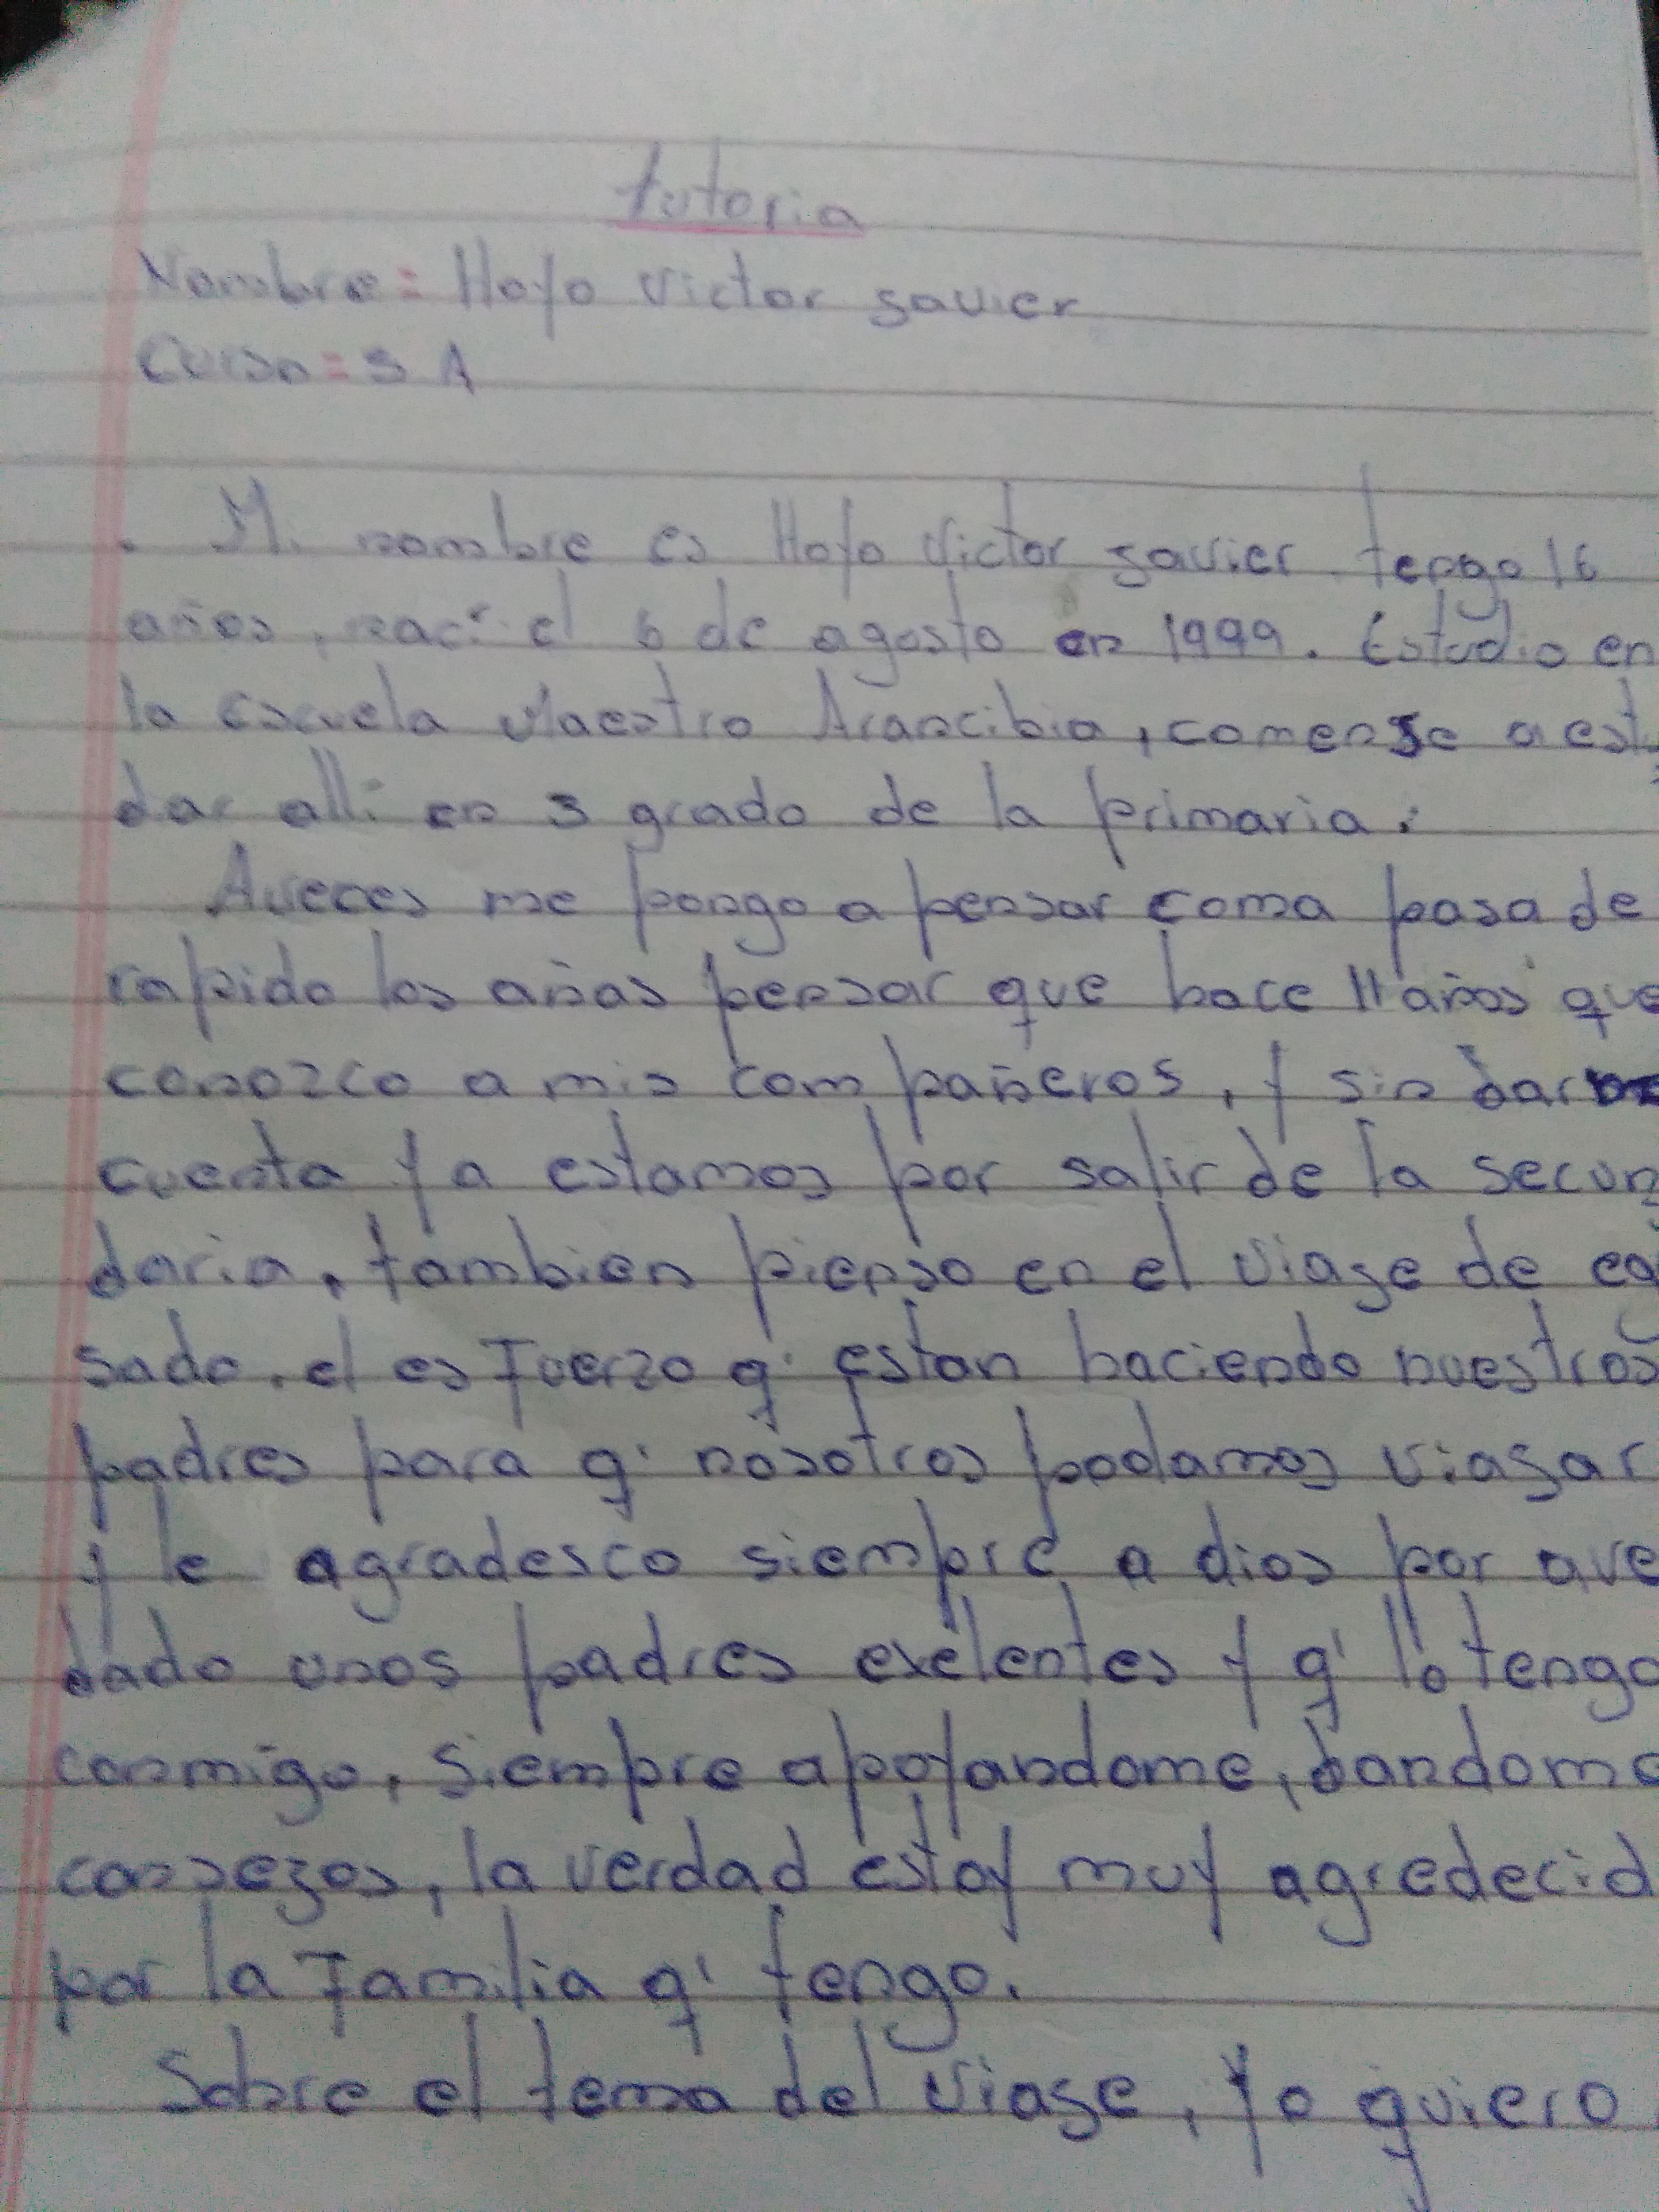 tutoria
Nombre = Hoyo Victor Javier
Curso = 5 A
. Mi nombre es Hoyo Victor Javier. tengo 16
años, nací el 6 de agosto en 1999. Estudio en
la escuela Maestro Arancibia, comense a estu
dar alli en 3 grado de la primaria.
Aveces me pongo a pensar como pasa de
rapido los años pensar que hace 11 años que
conozco a mis compañeros, y sin dar
cuenta ya estamos por salir de la secun
daria, tambien pienso en el viaje de eg
sado, el esfuerzo q' estan haciendo nuestros
padres para q' nosotros podamos viajar
y le agradesco siempre a dios por ave
dado unos padres exelentes y q' lo tengo
conmigo, siempre apoyandome, dandome
consejos, la verdad estoy muy agredecid
por la familia q' tengo.
Sobre el tema del viaje, yo quiero